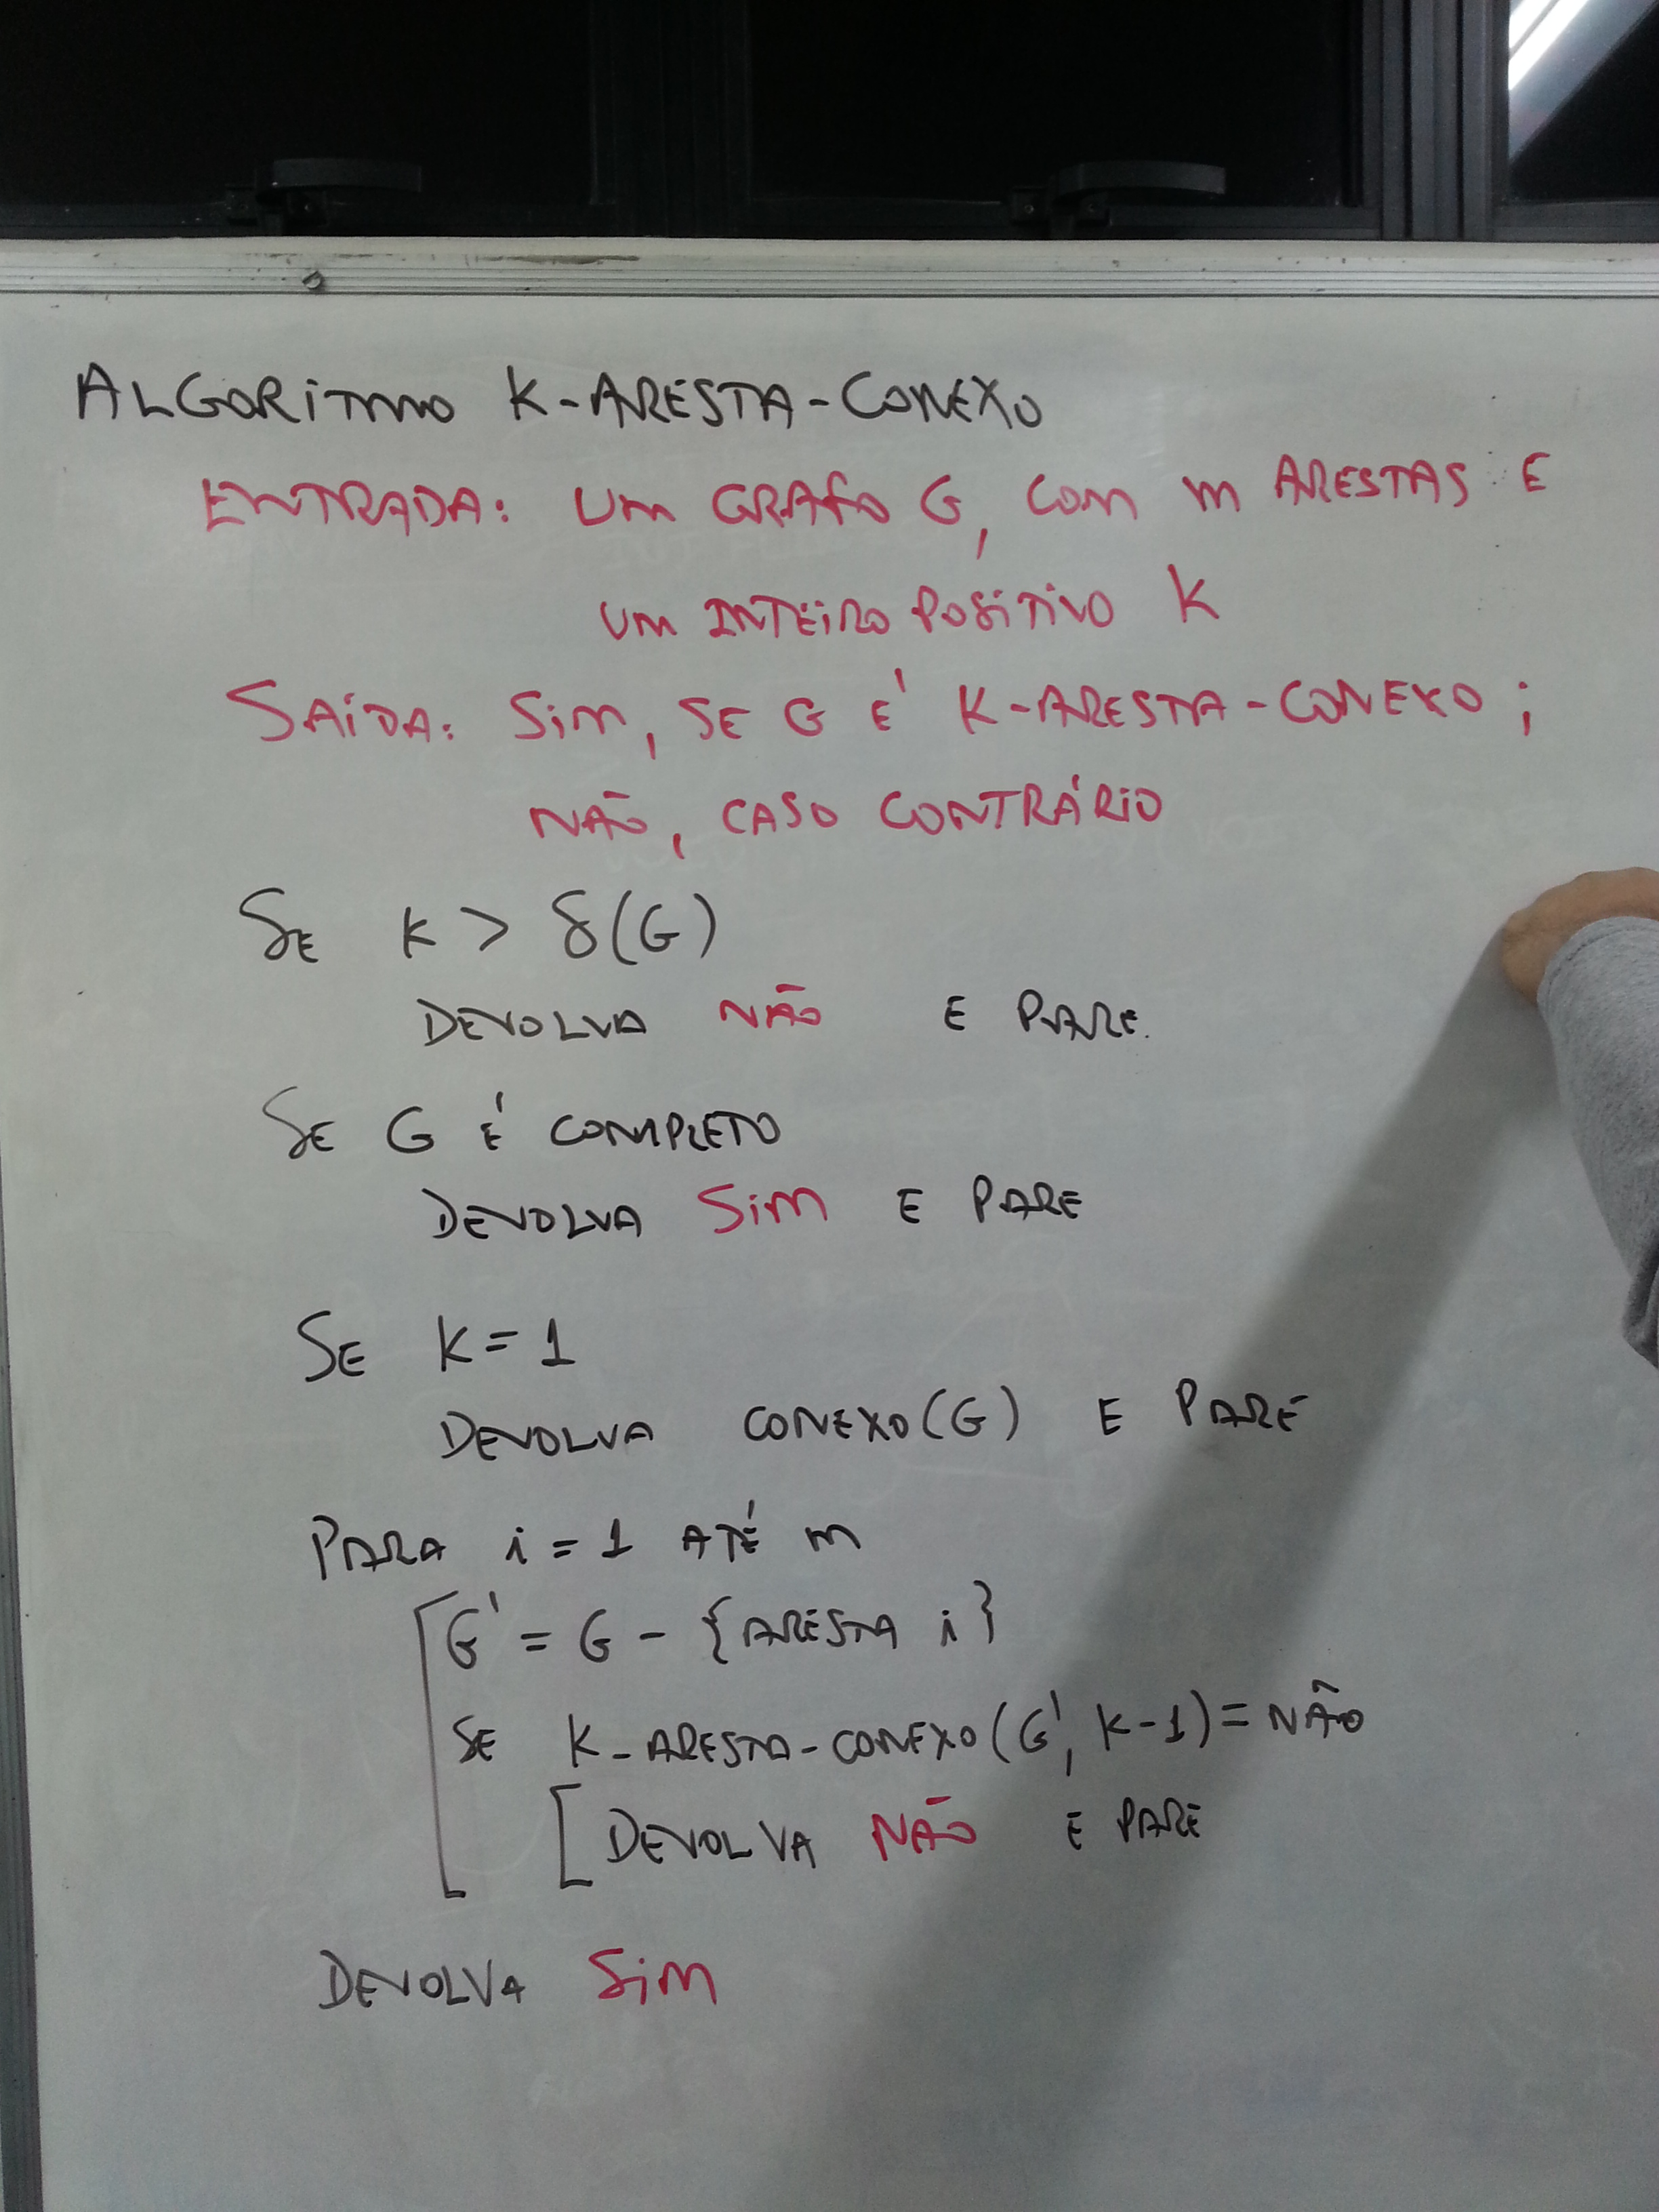 ALGORITMO K-ARESTA-CONEXO
ENTRADA: UM GRAFO G, COM m ARESTAS E
UM INTEIRO POSITIVO K
SAÍDA: SIM, SE G É K-ARESTA-CONEXO;
NÃO, CASO CONTRÁRIO
SE K > δ(G)
DEVOLVA NÃO E PARE.
SE G É COMPLETO
DEVOLVA SIM E PARE
SE K = 1
DEVOLVA CONEXO(G) E PARE
PARA i = 1 ATÉ m
G' = G - {ARESTA i}
SE K-ARESTA-CONEXO(G', K-1) = NÃO
DEVOLVA NÃO E PARE
DEVOLVA SIM